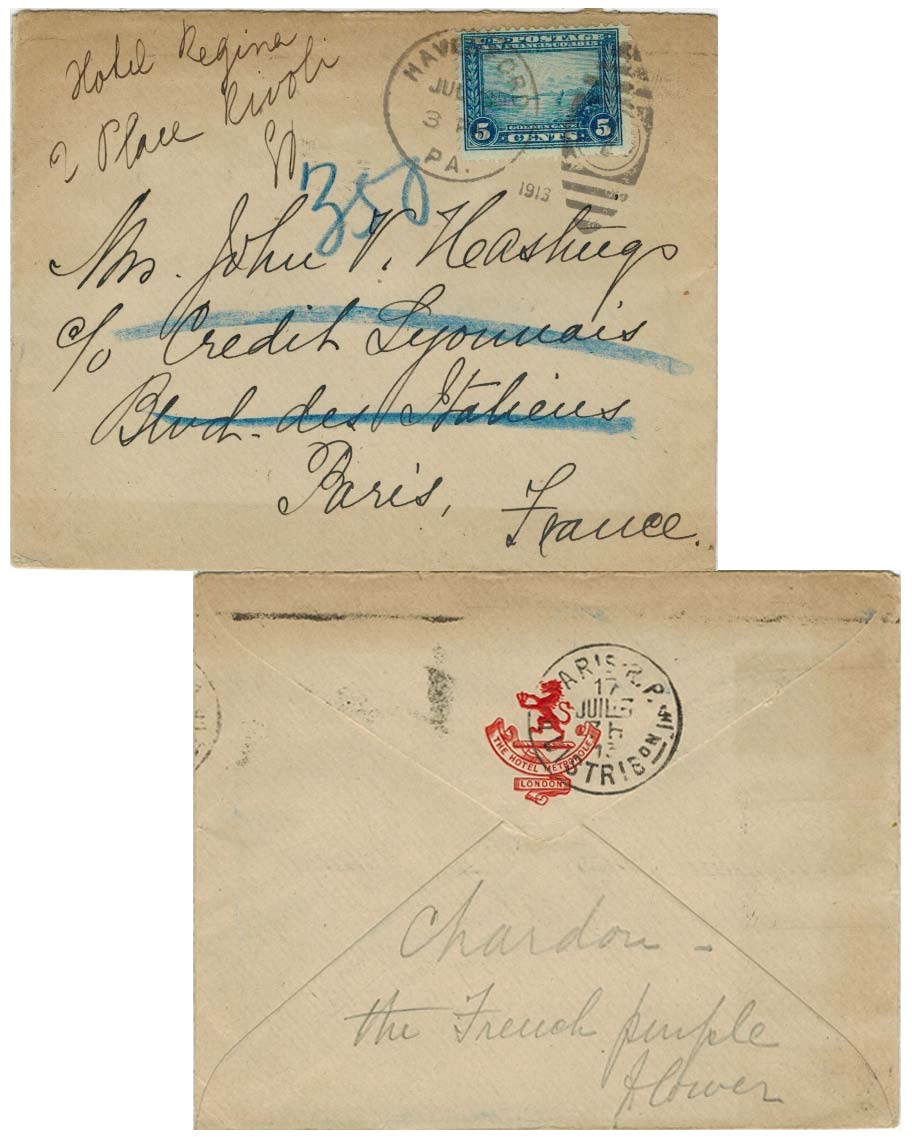 Hotel Regina
2 Place Rivoli
350
U.S. POSTAGE
SAN FRANCISCO 1915
GOLDEN GATE
5 CENTS 5
HAVERFORD
JUL
3
PA.
1913
Mrs. John V. Hastings
c/o Credit Lyonnais
Blvd. des Italiens
Paris,
France.
PARIS R.P.
17
JUIL
DISTRIBON
THE HOTEL METROPOLE
LONDON
Chardon -
the French purple
flower